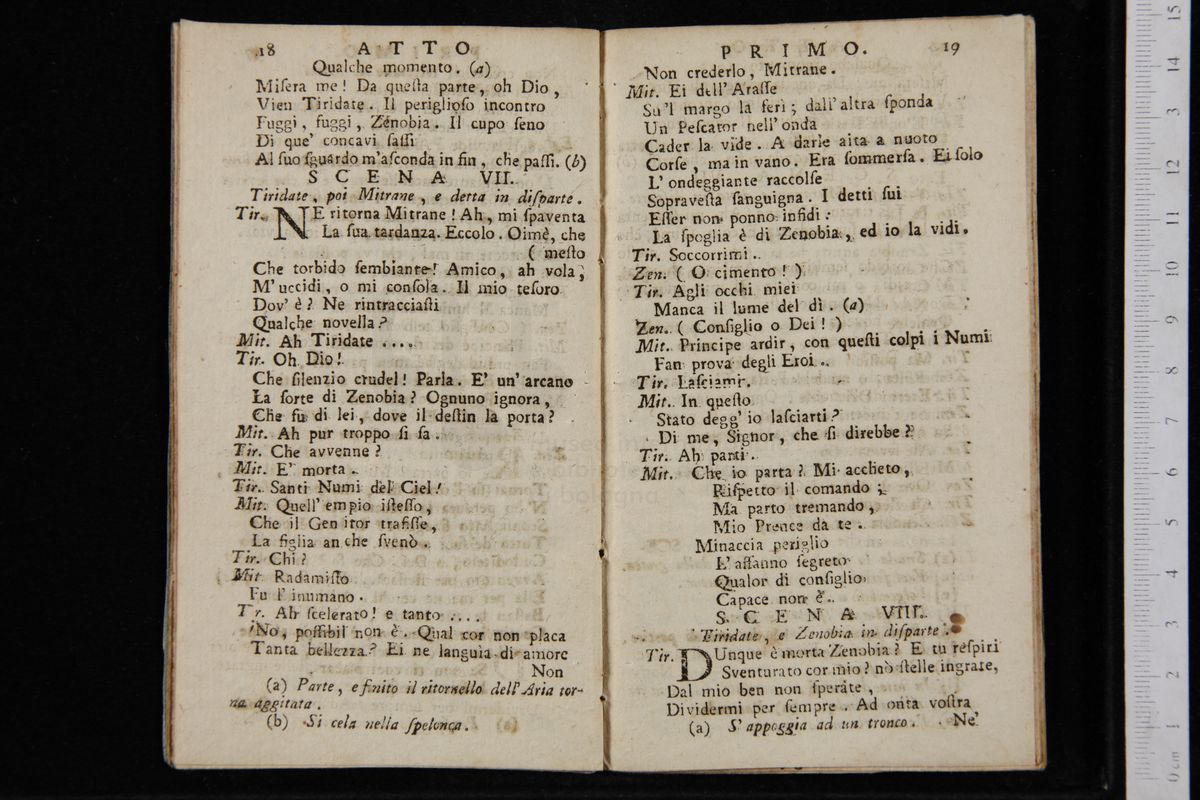 18 ATTO
Qualche momento. (a)
Miſera me! Da queſta parte, oh Dio,
Vien Tiridate. Il periglioſo incontro
Fuggi, fuggi, Zenobia. Il cupo ſeno
Di que' concavi ſaſſi
Al ſuo ſguardo m'aſconda in fin, che paſſi. (b)
SCENA VII.
Tiridate, poi Mitrane, e detta in diſparte.
Tir. NE ritorna Mitrane! Ah, mi ſpaventa
La ſua tardanza. Eccolo. Oimè, che
( meſto
Che torbido ſembiante! Amico, ah vola,
M'uccidi, o mi conſola. Il mio teſoro
Dov' è? Ne rintracciaſti
Qualche novella?
Mit. Ah Tiridate ....
Tir. Oh Dio!
Che ſilenzio crudel! Parla. E' un' arcano
La ſorte di Zenobia? Ognuno ignora,
Che fu di lei, dove il deſtin la porta?
Mit. Ah pur troppo ſi ſa.
Tir. Che avvenne?
Mit. E' morta.
Tir. Santi Numi del Ciel!
Mit. Quell' empio iſteſſo,
Che il Genitor trafiſſe,
La figlia anche ſvenò.
Tir. Chi?
Mit. Radamiſto
Fu l' inumano.
Tir. Ah ſcelerato! e tanto ....
No, poſſibil non è. Qual cor non placa
Tanta bellezza? Ei ne languìa di amore
Non
(a) Parte, e finito il ritornello dell'Aria tor-
na aggitata.
(b) Si cela nella ſpelonca.
PRIMO. 19
Non crederlo, Mitrane.
Mit. Ei dell' Araſſe
Su'l margo la ferì; dall' altra ſponda
Un Peſcator nell' onda
Cader la vide. A darle aita a nuoto
Corſe, ma in vano. Era ſommerſa. Ei ſolo
L' ondeggiante raccolſe
Sopraveſta ſanguigna. I detti ſui
Eſſer non ponno infidi:
La ſpoglia è di Zenobia, ed io la vidi.
Tir. Soccorrimi.
Zen. ( O cimento! )
Tir. Agli occhi miei
Manca il lume del dì. (a)
Zen. ( Conſiglio o Dei! )
Mit. Principe ardir, con queſti colpi i Numi
Fan prova degli Eroi.
Tir. Laſciami.
Mit. In queſto
Stato degg' io laſciarti?
Di me, Signor, che ſi direbbe?
Tir. Ah parti.
Mit. Che io parta? Mi accheto,
Riſpetto il comando;
Ma parto tremando,
Mio Prence da te.
Minaccia periglio
E' affanno ſegreto
Qualor di conſiglio
Capace non è.
SCENA VIII.
Tiridate, e Zenobia in diſparte.
Tir. DUnque è morta Zenobia? E tu reſpiri
Sventurato cor mio? nò ſtelle ingrate,
Dal mio ben non ſperate,
Dividermi per ſempre. Ad onta voſtra
(a) S' appoggia ad un tronco. Ne